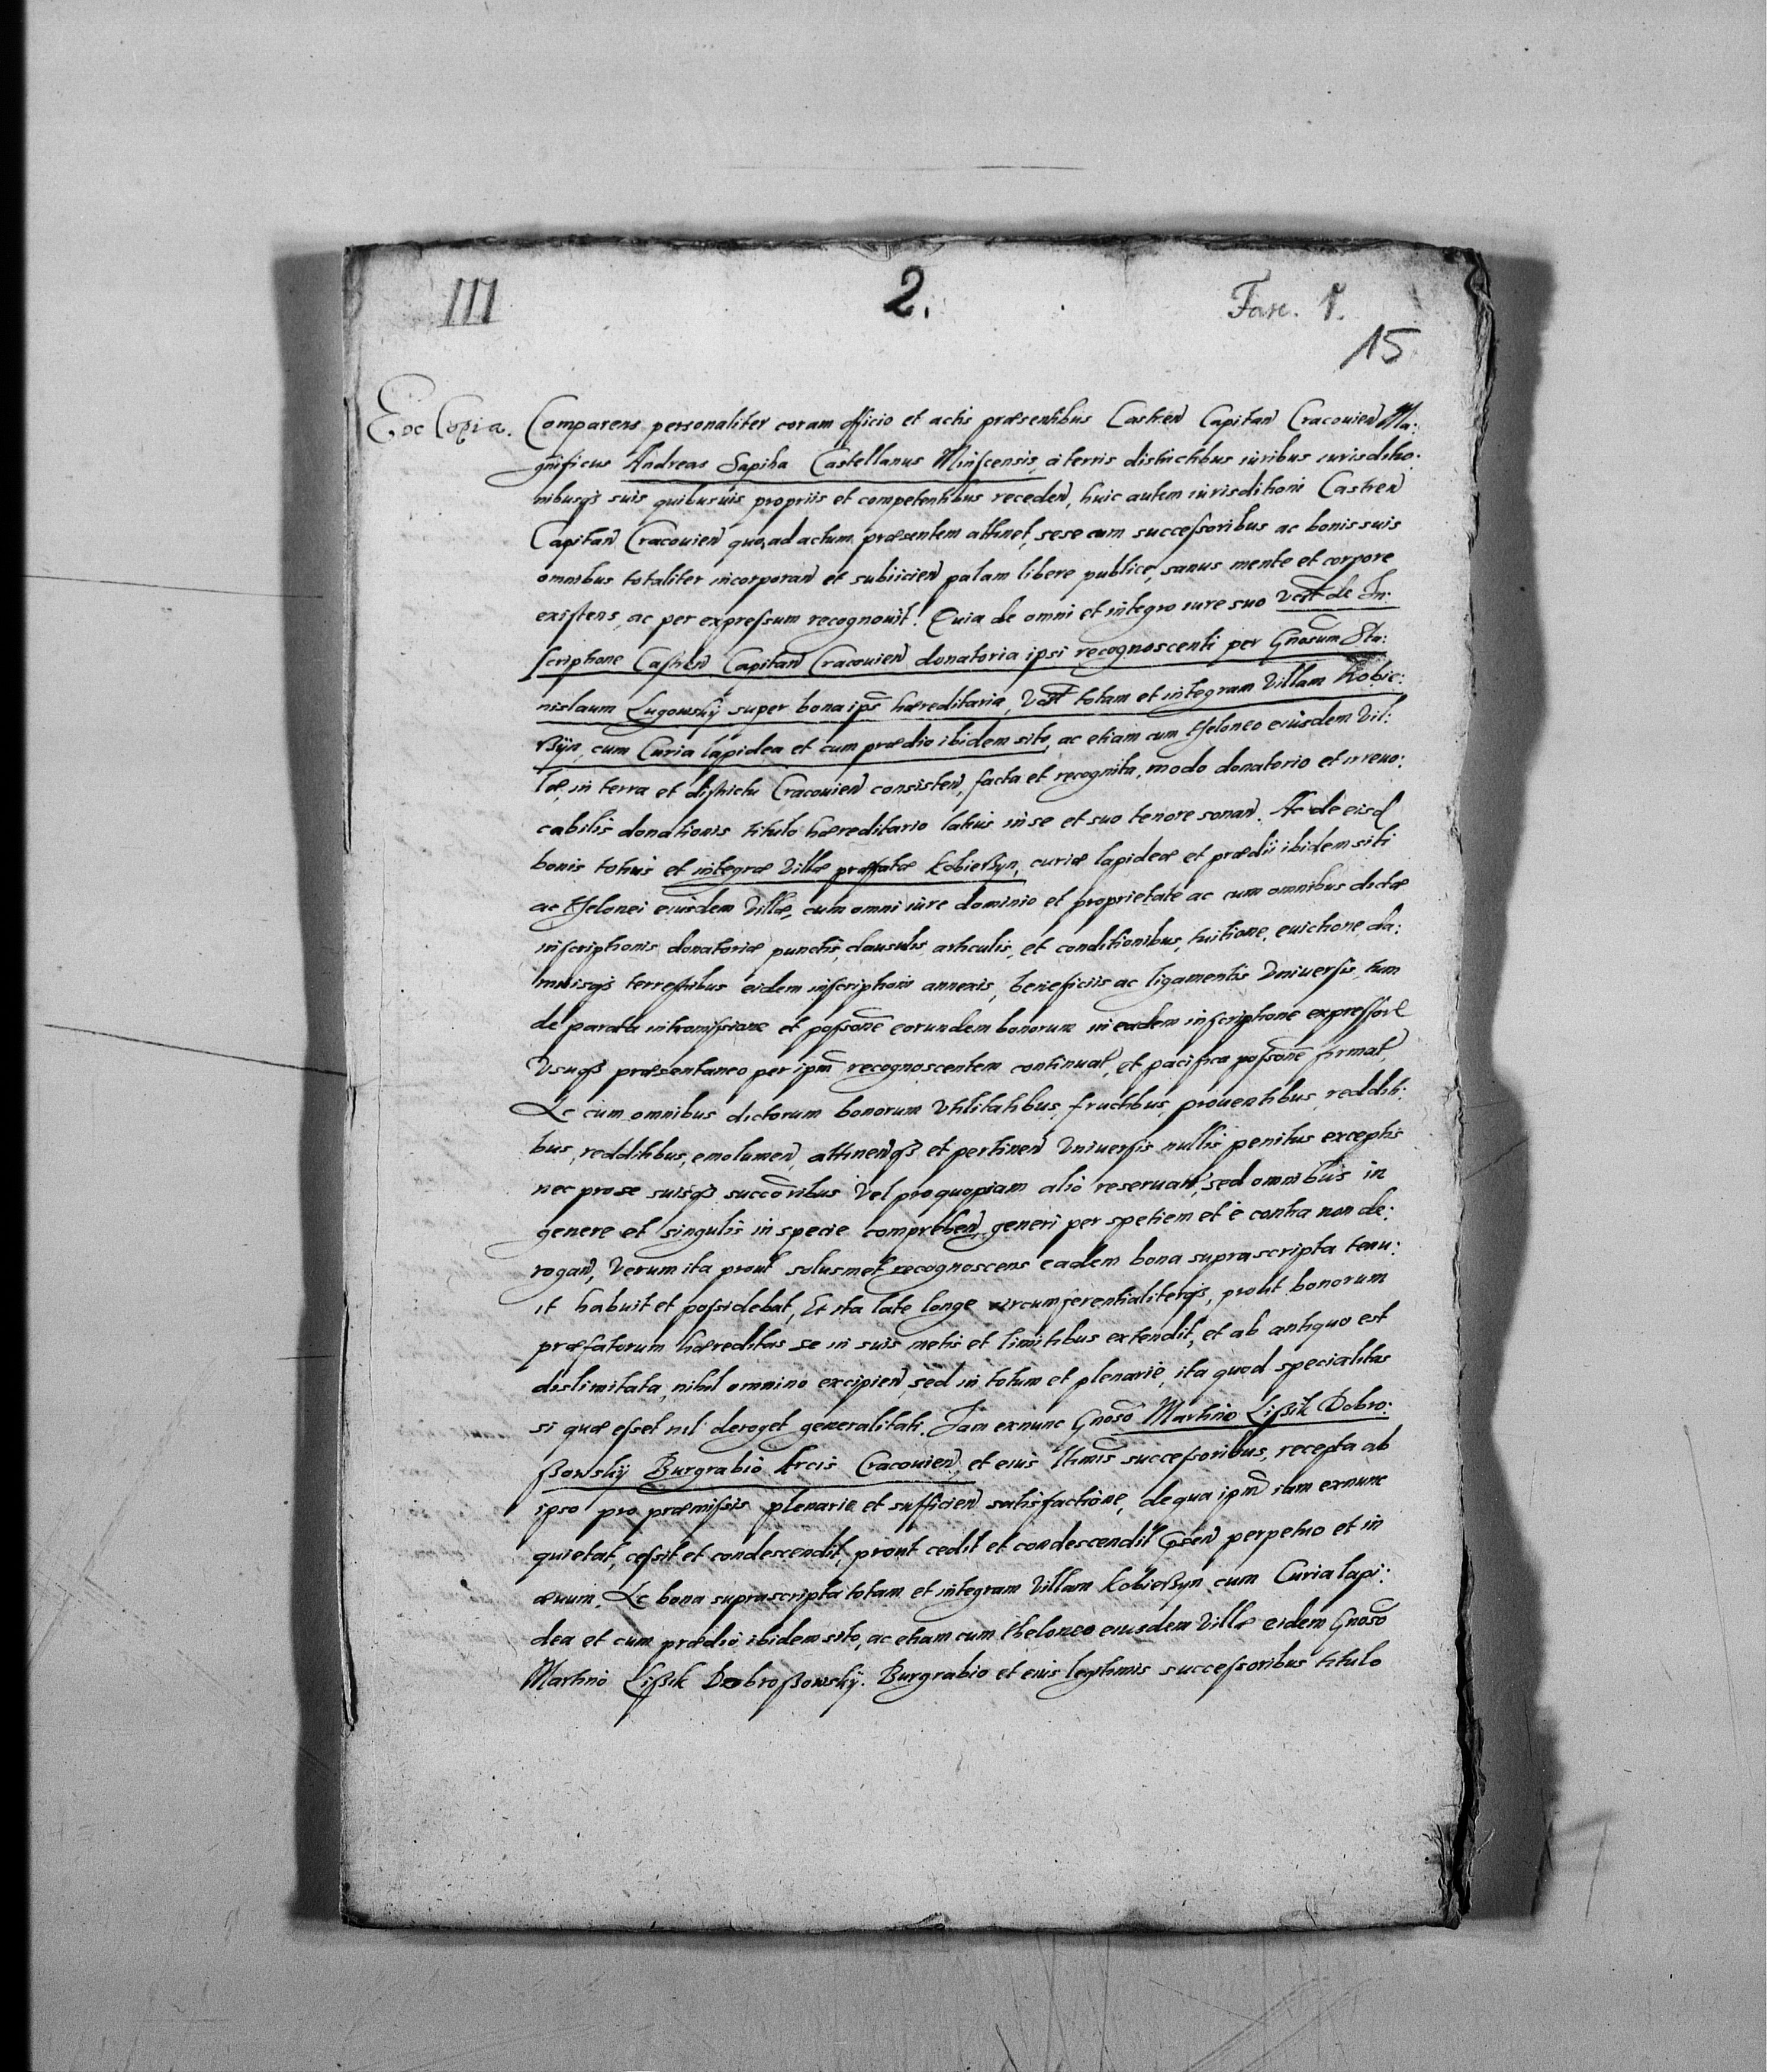 III 2. Fasc. 1.
15
Ex Copia. Comparens personaliter coram officio et actis præsentibus Castren̄ Capitan̄ Cracouien̄ Ma:
gnificus Andreas Sapiha Castellanus Minscensis, à terris districtibus iuribus iurisditio:
nibusq; suis quibusuis propriis et competentibus receden̄, huic autem iurisditioni Castren̄
Capitan̄ Cracouien̄ quo,ad actum præsentem attinet, sese cum successoribus ac bonis suis
omnibus totaliter incorporan̄ et subiicien̄ palam libere publice, sanus mente et corpore
existens, ac per expressum recognouit. Quia de omni et integro iure suo Vdt̄ de In:
scriptione Castren̄ Capitan̄ Cracouien̄ donatoria ipsi recognoscenti per Gn̄osum Sta:
nislaum Lugowskÿ super bona ips̄ hæreditaria, Vdt̄ totam et integram Villam Kobie:
rßÿn, cum Curia lapidea et cum prædio ibidem sito, ac etiam cum theloneo eiusdem Vil:
læ, in terra et districtu Cracouien̄ consisten̄, facta et recognita, modo donatorio et irreuo:
cabilis donationis titulo hæreditario latius in se et suo tenore sonan̄. Ac de eisd̄
bonis totius et integræ Villæ præfatæ Kobierßyn, curiæ lapideæ et prædii ibidem siti
ac thelonei eiusdem Villæ, cum omni iure dominio et proprietate ac cum omnibus dictæ
inscriptionis donatoriæ punctis, clausulis, articulis, et conditionibus, tuitione, euictione, da:
mnisq; terrestribus eidem inscriptioni annexis, beneficiis ac ligamentis Vniuersis, tum
de parata intromissione et possōne eorundem bonorum in eadem inscriptione
Vsuq; præsentaneo per ipm̄ recognoscentem continuat, et pacifica possōne firmat,
Ac cum omnibus dictorum bonorum Vtilitatibus, fructibus, prouentibus, redditi:
bus, redditibus, emolumen̄, attinen̄q; et pertinen̄ Vniuersis nullis penitus exceptis
nec pro se suisq; succōribus Vel pro quopiam alio reseruat̄, sed omnibus in
genere et singulis in specie comprehen̄, generi per spetiem et è contra non de:
rogan̄, Verum ita prout solusmet recognoscens eadem bona suprascripta tenu:
it habuit et possidebat, Et ita late longe circumferentialiterq;, prout bonorum
præfatorum hæreditas se in suis metis et limitibus extendit, et ab antiquo est
dislimitata, nihil omnino excipien̄, sed in totum et plenarie, ita quod specialitas
si quæ esset nil deroget generalitati. Iam exnunc Gn̄oso Martino Lißik Dobro:
ßowskÿ Burgrabio Arcis Cracouien̄, et eius ltimis successoribus, recepta ab
ipso pro præmissis plenarie et sufficien̄ satisfactione, de qua ipm̄ iam exnunc
quietat, cessit et condescendit, prout cedit et condescendit p̄sen̄ perpetuo et in
æuum. Ac bona suprascripta totam et integram Villam Kobierßyn cum Curia lapi:
dea et cum prædio ibidem sito, ac etiam cum theloneo eiusdem Villæ eidem Gn̄oso
Martino Lißik Dobroßowskÿ. Burgrabio et eius legitimis successoribus titulo